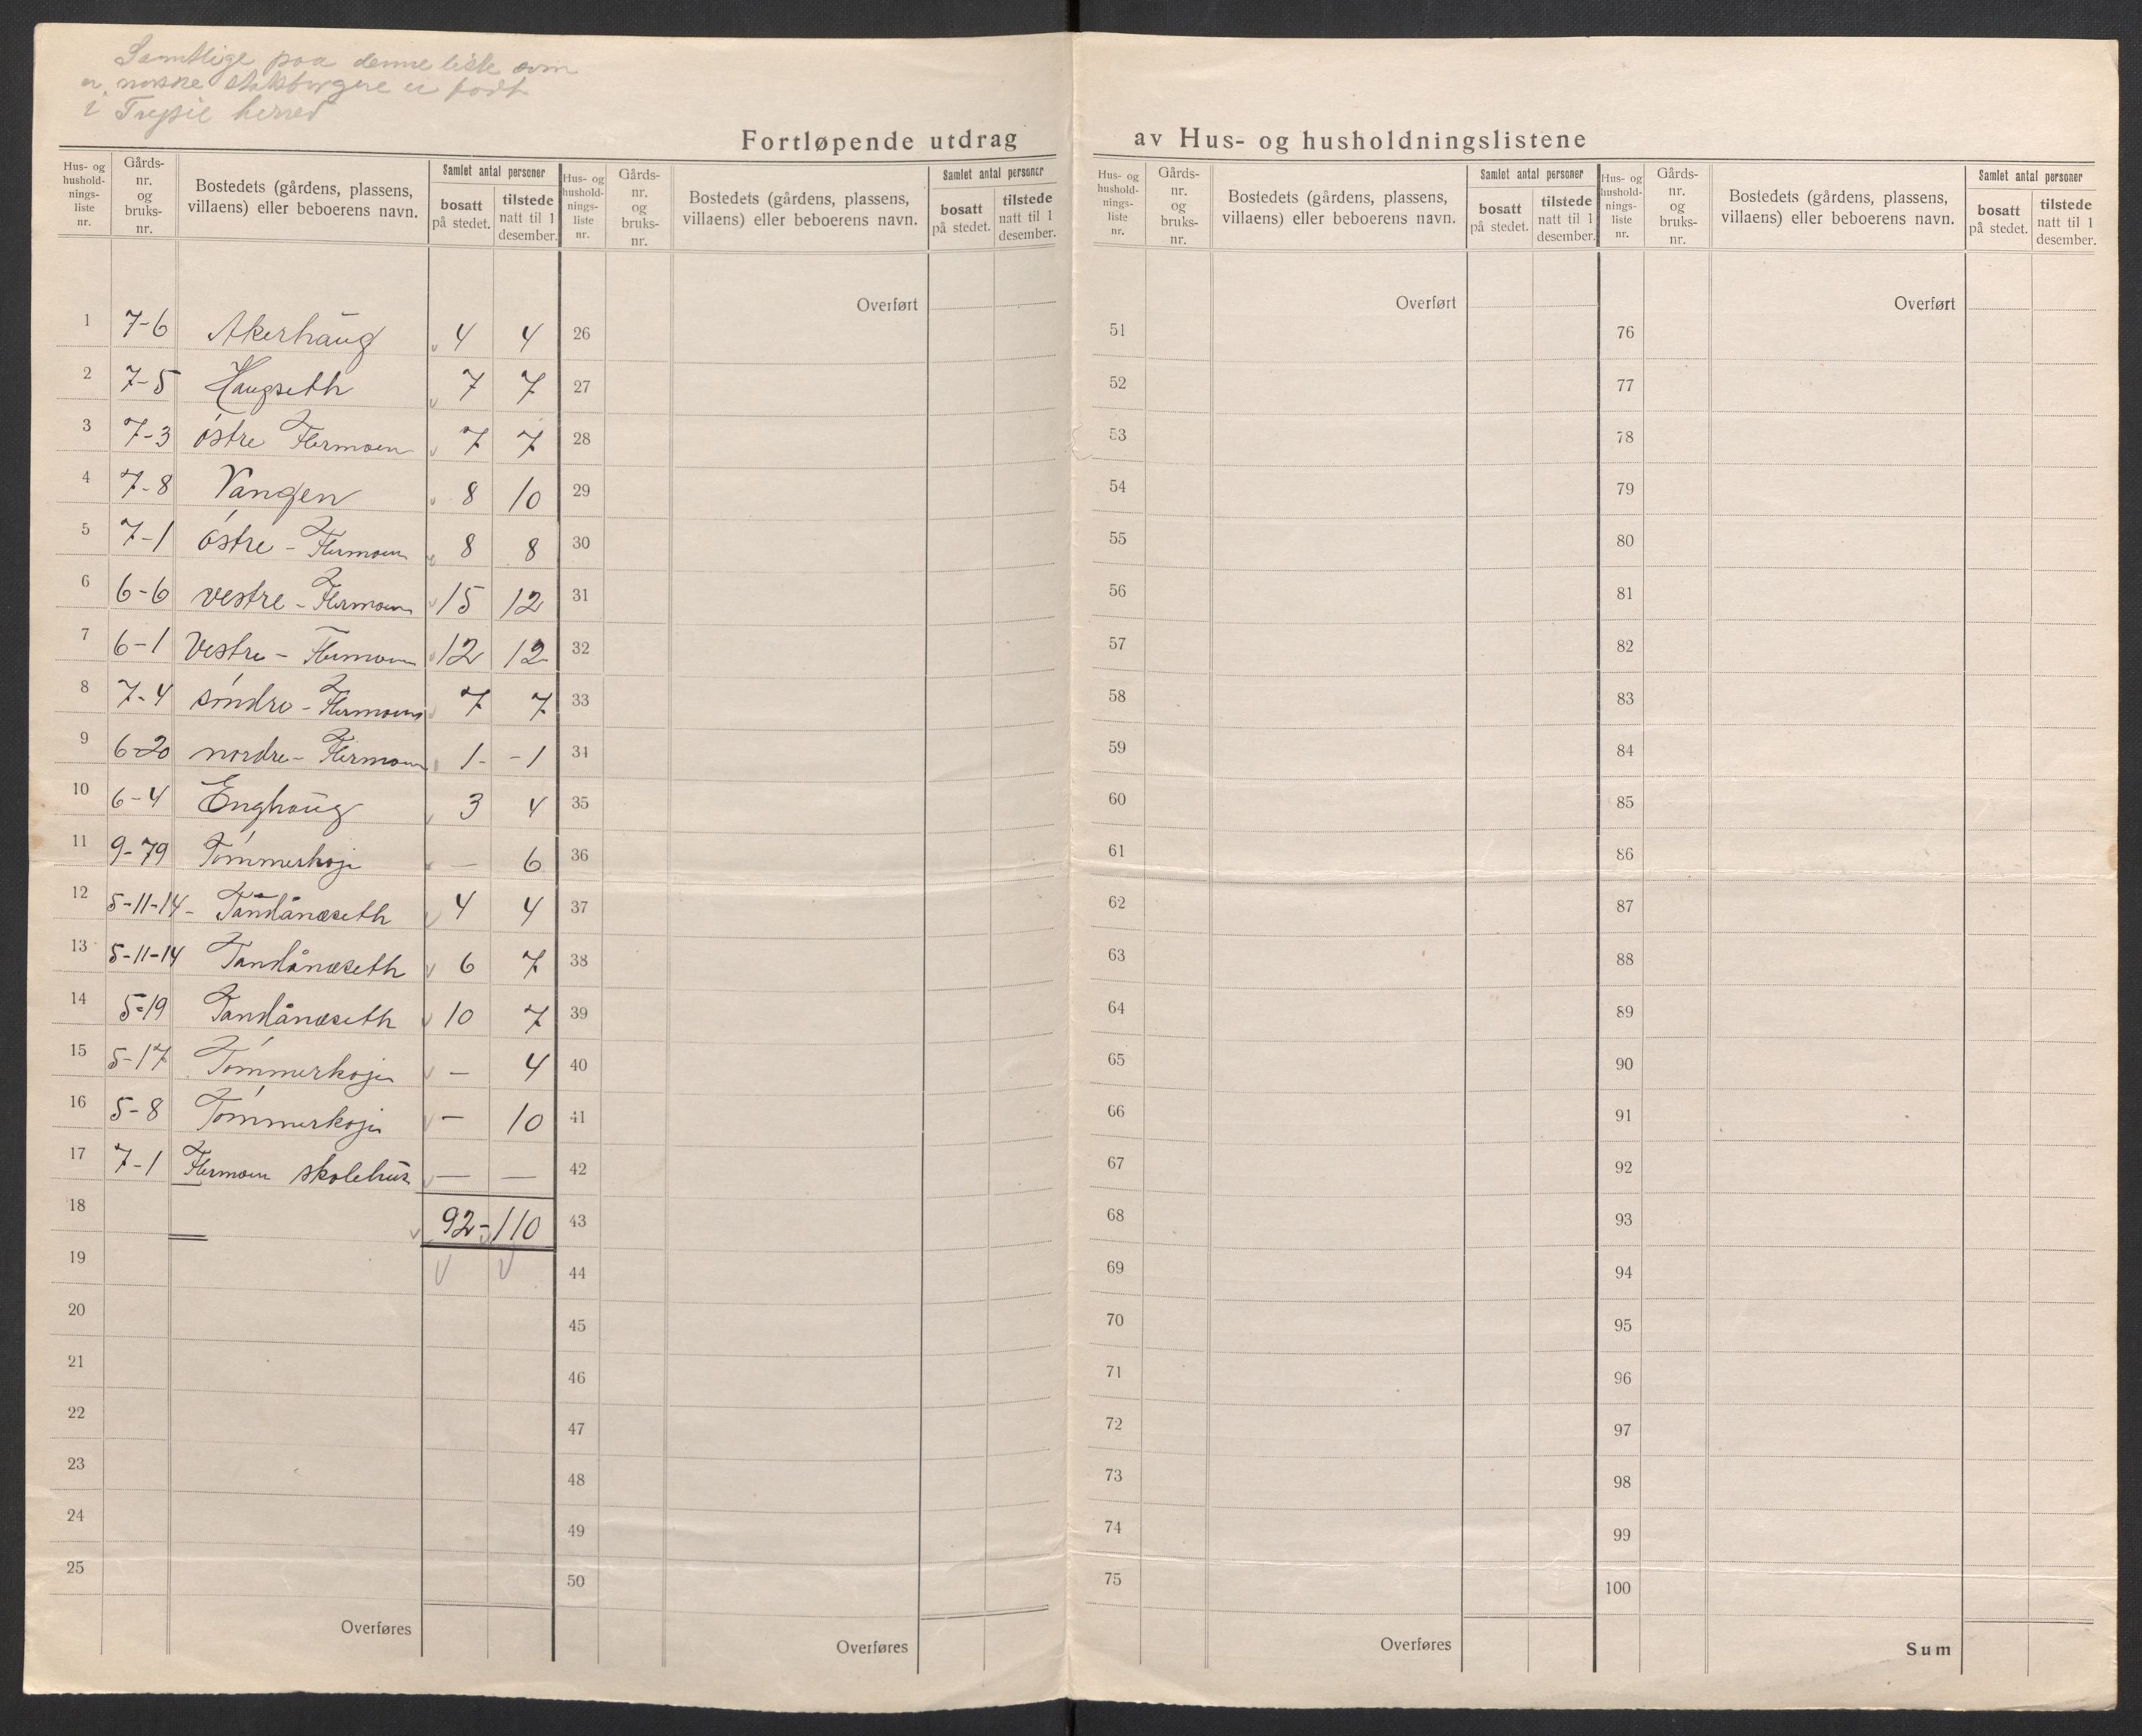 Samtlige paa denne liste som
er norske statsborgere er født
i Trysil herred
Fortløpende utdrag av Hus- og husholdningslistene
Hus- og hushold-nings-liste nr. Gårds-nr. og bruks-nr. Bostedets (gårdens, plassens, villaens) eller beboerens navn. Samlet antal personer bosatt på stedet. tilstede natt til 1 desember.
Hus- og hushold-nings-liste nr. Gårds-nr. og bruks-nr. Bostedets (gårdens, plassens, villaens) eller beboerens navn. Samlet antal personer bosatt på stedet. tilstede natt til 1 desember.
Hus- og hushold-nings-liste nr. Gårds-nr. og bruks-nr. Bostedets (gårdens, plassens, villaens) eller beboerens navn. Samlet antal personer bosatt på stedet. tilstede natt til 1 desember.
Hus- og hushold-nings-liste nr. Gårds-nr. og bruks-nr. Bostedets (gårdens, plassens, villaens) eller beboerens navn. Samlet antal personer bosatt på stedet. tilstede natt til 1 desember.
Overført Overført Overført
1 7-6 Akerhaug 4 4 26 51 76
2 7-5 Haugseth 7 7 27 52 77
3 7-3 østre Flermoen 7 7 28 53 78
4 7-8 Vangen 8 10 29 54 79
5 7-1 østre - Flermoen 8 8 30 55 80
6 6-6 vestre - Flermoen 15 12 31 56 81
7 6-1 Vestre - Flermoen 12 12 32 57 82
8 7-4 søndre - Flermoen 7 7 33 58 83
9 6-20 nordre - Flermoen 1 - - 1 34 59 84
10 6-4 Enghaug 3 4 35 60 85
11 9-79 Tømmerkoje — 6 36 61 86
12 5-11-14 - Tandånæseth 4 4 37 62 87
13 5-11-14 Tandånæseth 6 7 38 63 88
14 5-19 Tandånæseth 10 7 39 64 89
15 5-17 Tømmerkoje — 4 40 65 90
16 5-8 Tømmerkoje — 10 41 66 91
17 7-1 Flermoen skolehus — — 42 67 92
18 92 - 110 43 68 93
19 44 69 94
20 45 70 95
21 46 71 96
22 47 72 97
23 48 73 98
24 49 74 99
25 50 75 100
Overføres Overføres Overføres Sum